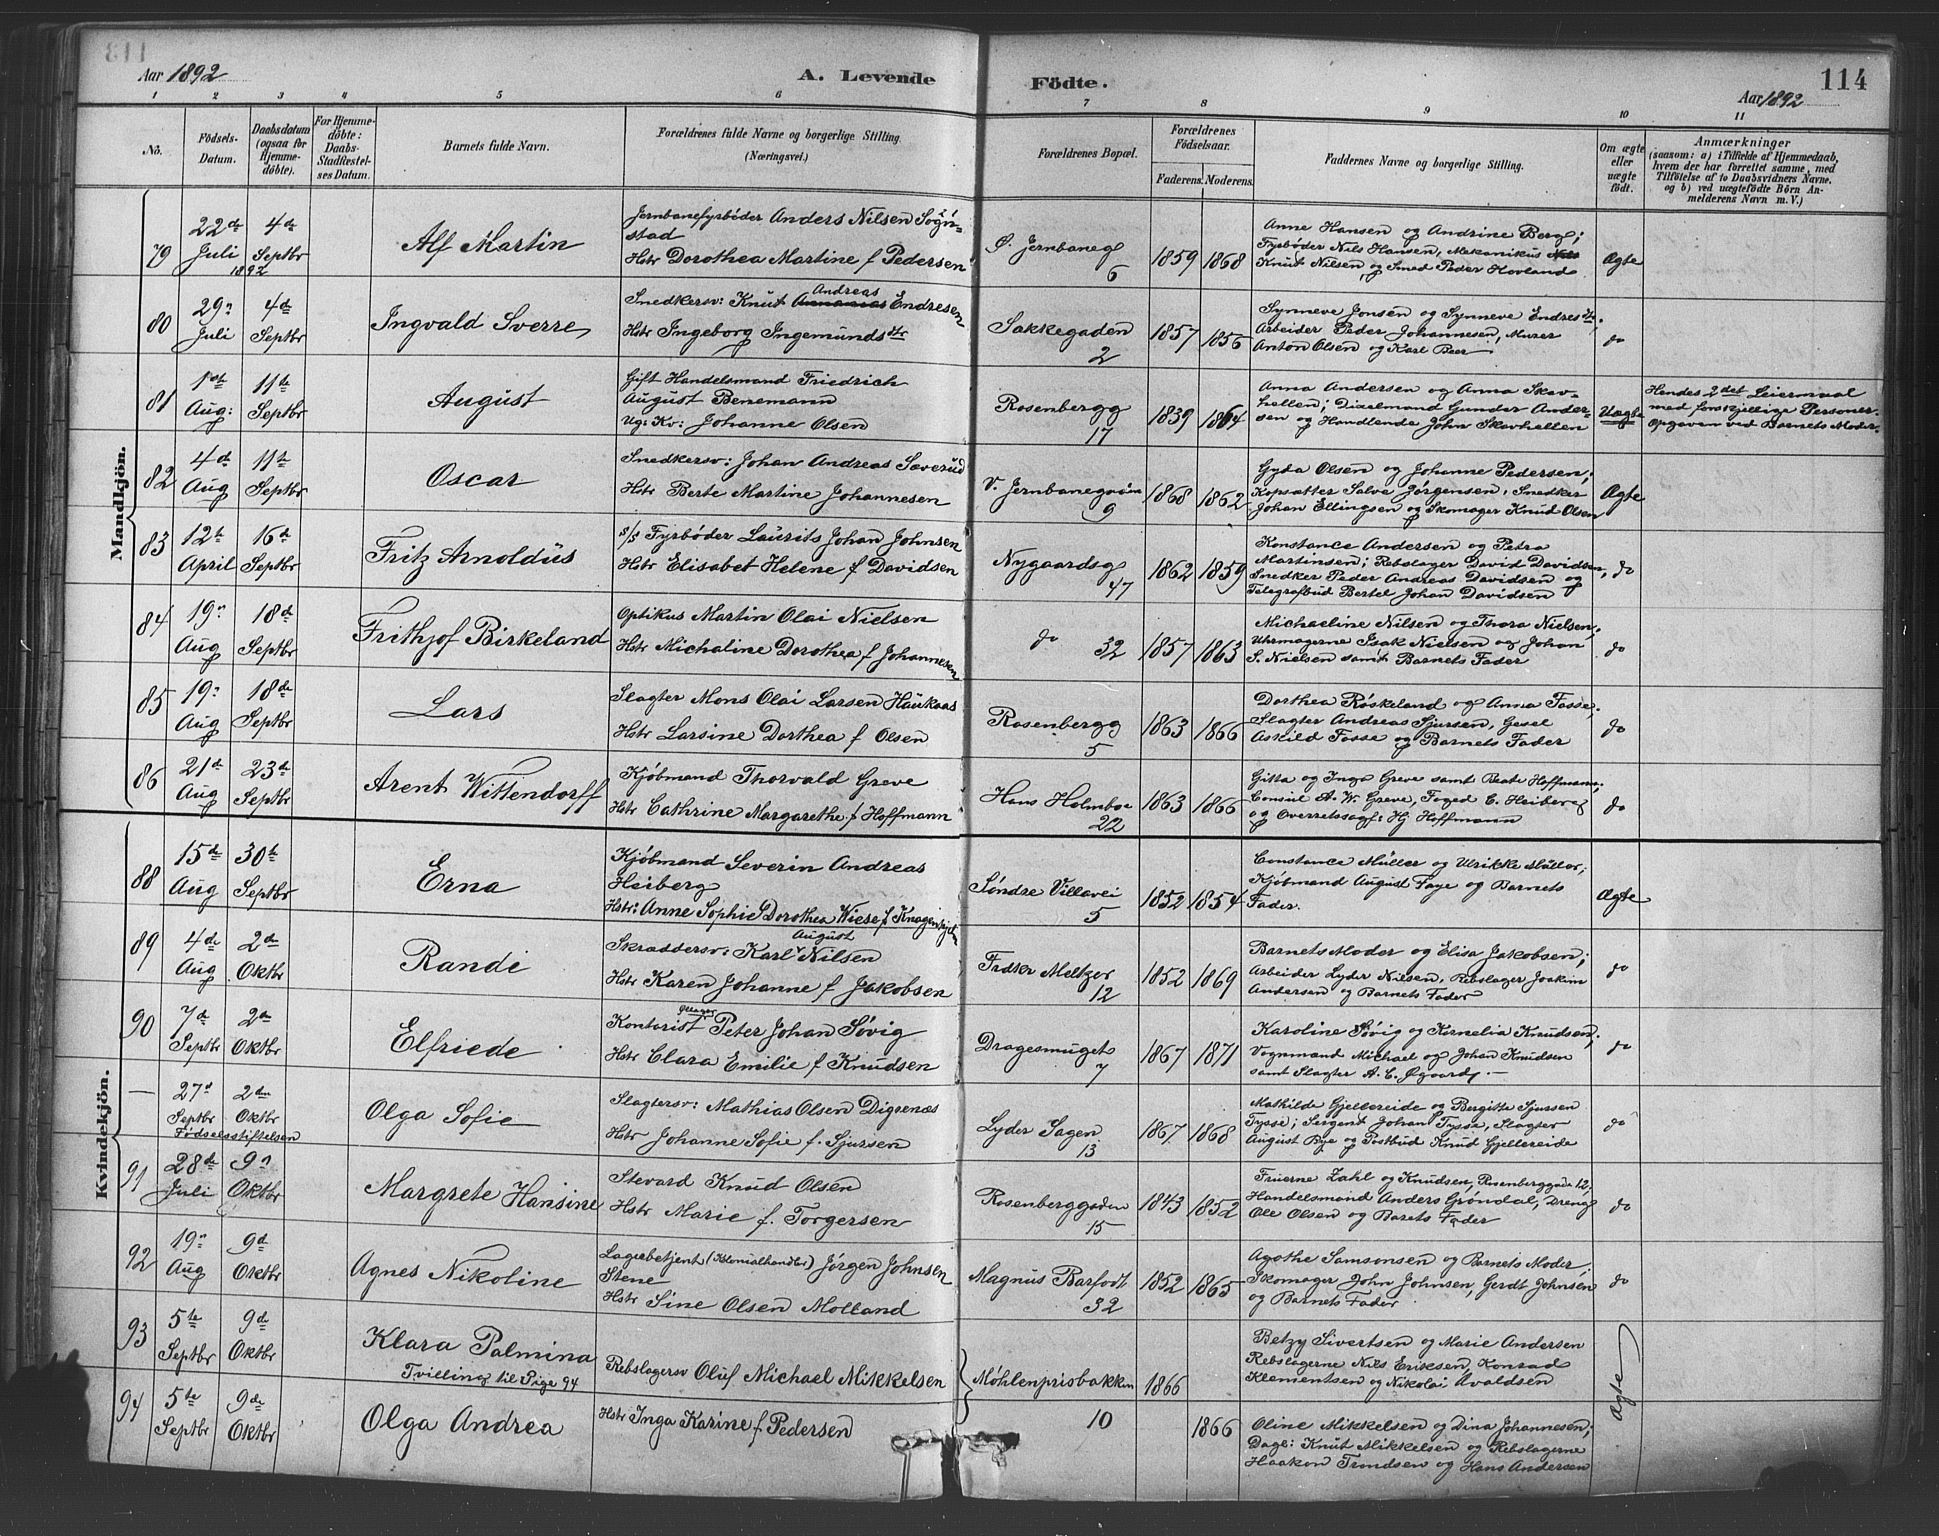 Aar 1892
A. Levende
Födte.
114
Aar 1892
1 2 3 4 5 6 7 8 9 10 11
No.
Födsels-
Datum.
Daabsdatum
(ogsaa for
Hjemme-
døbte).
For Hjemme-
døbte:
Daabs-
Stadfæstel-
ses Datum.
Barnets fulde Navn.
Forældrenes fulde Navne og borgerlige Stilling
(Næringsvei.)
Forældrenes Bopæl.
Forældrenes
Födselsaar.
Faderens. Moderens.
Faddernes Navne og borgerlige Stilling.
Om ægte
eller
uægte
født.
Anmærkninger
(saasom: a) i Tilfælde af Hjemmedaab,
hvem der har forrettet samme, med
Tilføielse af to Daabsvidners Navne,
og b) ved uægtefødte Börn An-
melderens Navn m. V.)
Mandkjön.
79
22de
Juli
1892
4de
Septbr
Alf Martin
Jernbanefyrbøder Anders Nilsen Sogn-
stad
Hstr Dorothea Martine f Pedersen
Ø. Jernbaneg
6
1859
1868
Anne Hansen og Andrine Berg;
Fyrbøder Nils Hansen, Mekanikus
Knut Nilsen og Smed Peder Hovland
Ægte
80
29n
Juli
4de
Septbr
Ingvald Sverre
Andreas
Snedkersv: Knut Endresen
Hstr Ingeborg Ingemundsdtr
Sakkegaden
2
1857
1856
Synneve Jonsen og Synneve Endresdtr;
Arbeider Peder Johannesen, Murer
Anton Olsen og Karl Beer
do
81
1ste
Aug:
11te
Septbr
August
Gift Handelsmand Friedrich
August Benemann
Ug: Kv: Johanne Olsen
Rosenbergg
17
1839
1864
Anna Andersen og Anna Skav-
hellen; Dixelmand Gunder Ander-
sen og Handlende John Skavhellen
Uægte
Hendes 2det Leiermaal
med forskjellige Personer.
Opgaven ved Barnets Moder.
82
4de
Aug
11te
Septbr
Oscar
Snedkersv: Johan Andreas Sæverud
Hstr Berte Martine Johannesen
V. Jernbanegaden
9
1868
1862
Gyda Olsen og Johanne Pedersen;
Kopsætter Salve Jørgensen, Snedker
Johan Ellingsen og Skomager Knud Olsen
Ægte
83
12te
April
16de
Septbr
Fritz Arnoldus
s/s Fyrbøder Laurits Johan Johnsen
Hstr Elisabet Helene f Davidsen
Nygaardsg
47
1862
1859
Konstance Andersen og Petra
Martinsen; Rebslager David Davidsen,
Snedker Peder Andreas Davidsen og
Telegrafbud Bertel Johan Davidsen
do
84
19n
Aug
18de
Septbr
Frithjof Birkeland
Optikus Martin Olai Nielsen
Hstr Michaline Dorothea f Johannesen
do 32
1857
1863
Michaeline Nilsen og Thora Nielsen;
Uhrmagerne Isak Nielsen og Johan
S. Nielsen samt Barnets Fader
do
85
19n
Aug
18de
Septbr
Lars
Slagter Mons Olai Larsen Haukaas
Hstr Larsine Dorthea f Olsen
Rosenbergg
5
1863
1866
Dorthea Røskeland og Anna Fosse;
Slagter Andreas Sjursen, Gesel
Askild Fosse og Barnets Fader
do
86
21de
Aug
23de
Septbr
Arent Wittendorff
Kjøbmand Thorvald Greve
Hstr Cathrine Margarethe f Hoffmann
Hans Holmboe
22
1863
1866
Gitta og Inga Greve samt Beate Hoffmann;
Consul A. W. Greve, Foged C. Heiberg
og Overretssagf: Hj Hoffmann
do
Kvindekjön.
88
15de
Aug
30te
Septbr
Erna
Kjøbmand Severin Andreas
Heiberg
Hstr: Anne Sophie Dorothea Wiese f Knagenhjelm
Søndre Villavei
5
1852
1854
Constance Müller og Ulrikke Müller;
Kjøbmand August Faye og Barnets
Fader.
Ægte
89
4de
Aug
2den
Oktbr
Randi
August
Skræddersv: Karl Nilsen
Hstr Karen Johanne f Jakobsen
Fredkr Meltzer
12
1852
1869
Barnets Moder og Elisa Jakobsen;
Arbeider Lyder Nilsen, Rebslager Joakim
Andersen og Barnets Fader
do
90
7de
Septbr
2den
Oktbr
Elfriede
Kontorist Peter Johan Søvig
Hstr Clara Emilie f Knudsen
Dragesmuget
7
1867
1871
Karoline Søvig og Kornelia Knudsen;
Vognmand Michael og Johan Knudsen
samt Slagter A. C. Øgaard.
do
—
27d
Septbr
Fødselsstiftelsen
2den
Oktbr
Olga Sofie
Slagtersv: Mathias Olsen Digernæs
Hstr Johanne Sofie f. Sjursen
Lyder Sagen
13
1867
1868
Mathilde Gjellereide og Bergitte Sjursen
Tysse; Sergent Johan Tysse, Slagter
August Bye og Postbud Knud Gjellereide
do
91
28de
Juli
9n
Oktbr
Margrete Hansine
Stevard Knud Olsen
Hstr Marie f. Torgersen
Rosenberggaden
15
1843
1852
Fruerne Zahl og Knudsen, Rosenberggade 12,
Handelsmand Anders Grøndal, Dreng
Ole Olsen og Barets Fader
do
92
19n
Aug
9d
Oktbr
Agnes Nikoline
Lagerbetjent (Kolonialhandler) Jørgen Johnsen
Stene
Hstr Sine Olsen Molland
Magnus Barfodt
32
1852
1865
Agothe Samsonsen og Barnets Moder;
Skomager John Johnsen, Gerdt Johnsen
og Barnets Fader
do
93
5te
Septbr
9de
Oktbr
Klara Palmina
Tvilling til Pige 94
Rebslagersv Oluf Michael Mikkelsen
Møhlenprisbakken
1866
Betzy Sivertsen og Marie Andersen
Rebslagerne Nils Eriksen, Konrad
Klementsen og Nikolai Avaldsen
Ægte
94
5te
Septbr
9de
Oktbr
Olga Andrea
Hstr Inga Karine f Pedersen
10
1866
Oline Mikkelsen og Dina Johannesen;
Dagl: Knut Mikkelsen og Rebslagerne
Haakon Trondsen og Hans Andersen